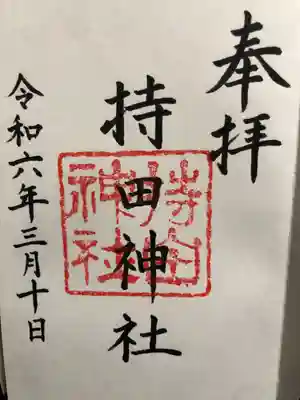 奉拝
持田神社
令和六年三月十日
持田
神社